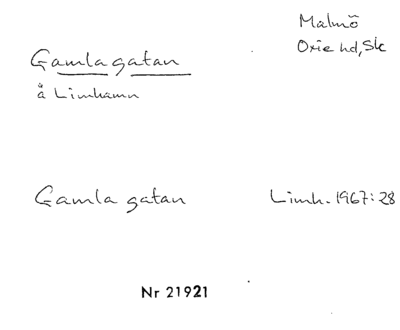 Malmö
Oxie hd, Sk
Gamla gatan
å Limhamn
Gamla gatan
Limh. 1967:28
Nr 21921